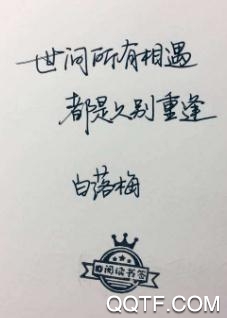 世间所有相遇
都是久别重逢
白落梅
阅读书签
QQTF.COM